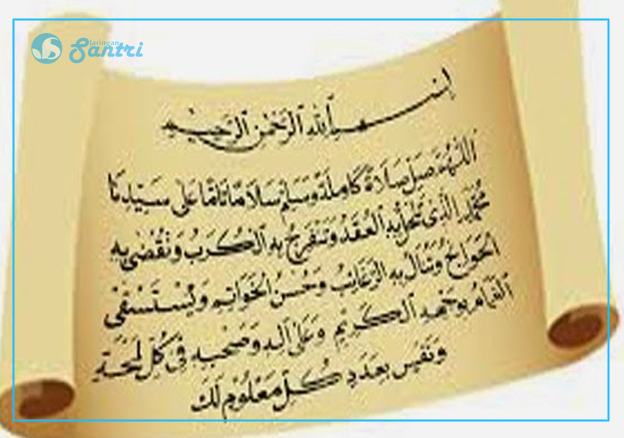 Jaringan
Santri
بسم الله الرحمن الرحيم
اللهم صل صلاة كاملة وسلم سلاما تاما على سيدنا
محمد الذي تنحل به العقد وتنفرج به الكرب وتقضى به
الحوائج وتنال به الرغائب وحسن الخواتم ويستسقى
الغمام بوجهه الكريم وعلى اله وصحبه في كل لمحة
ونفس بعدد كل معلوم لك